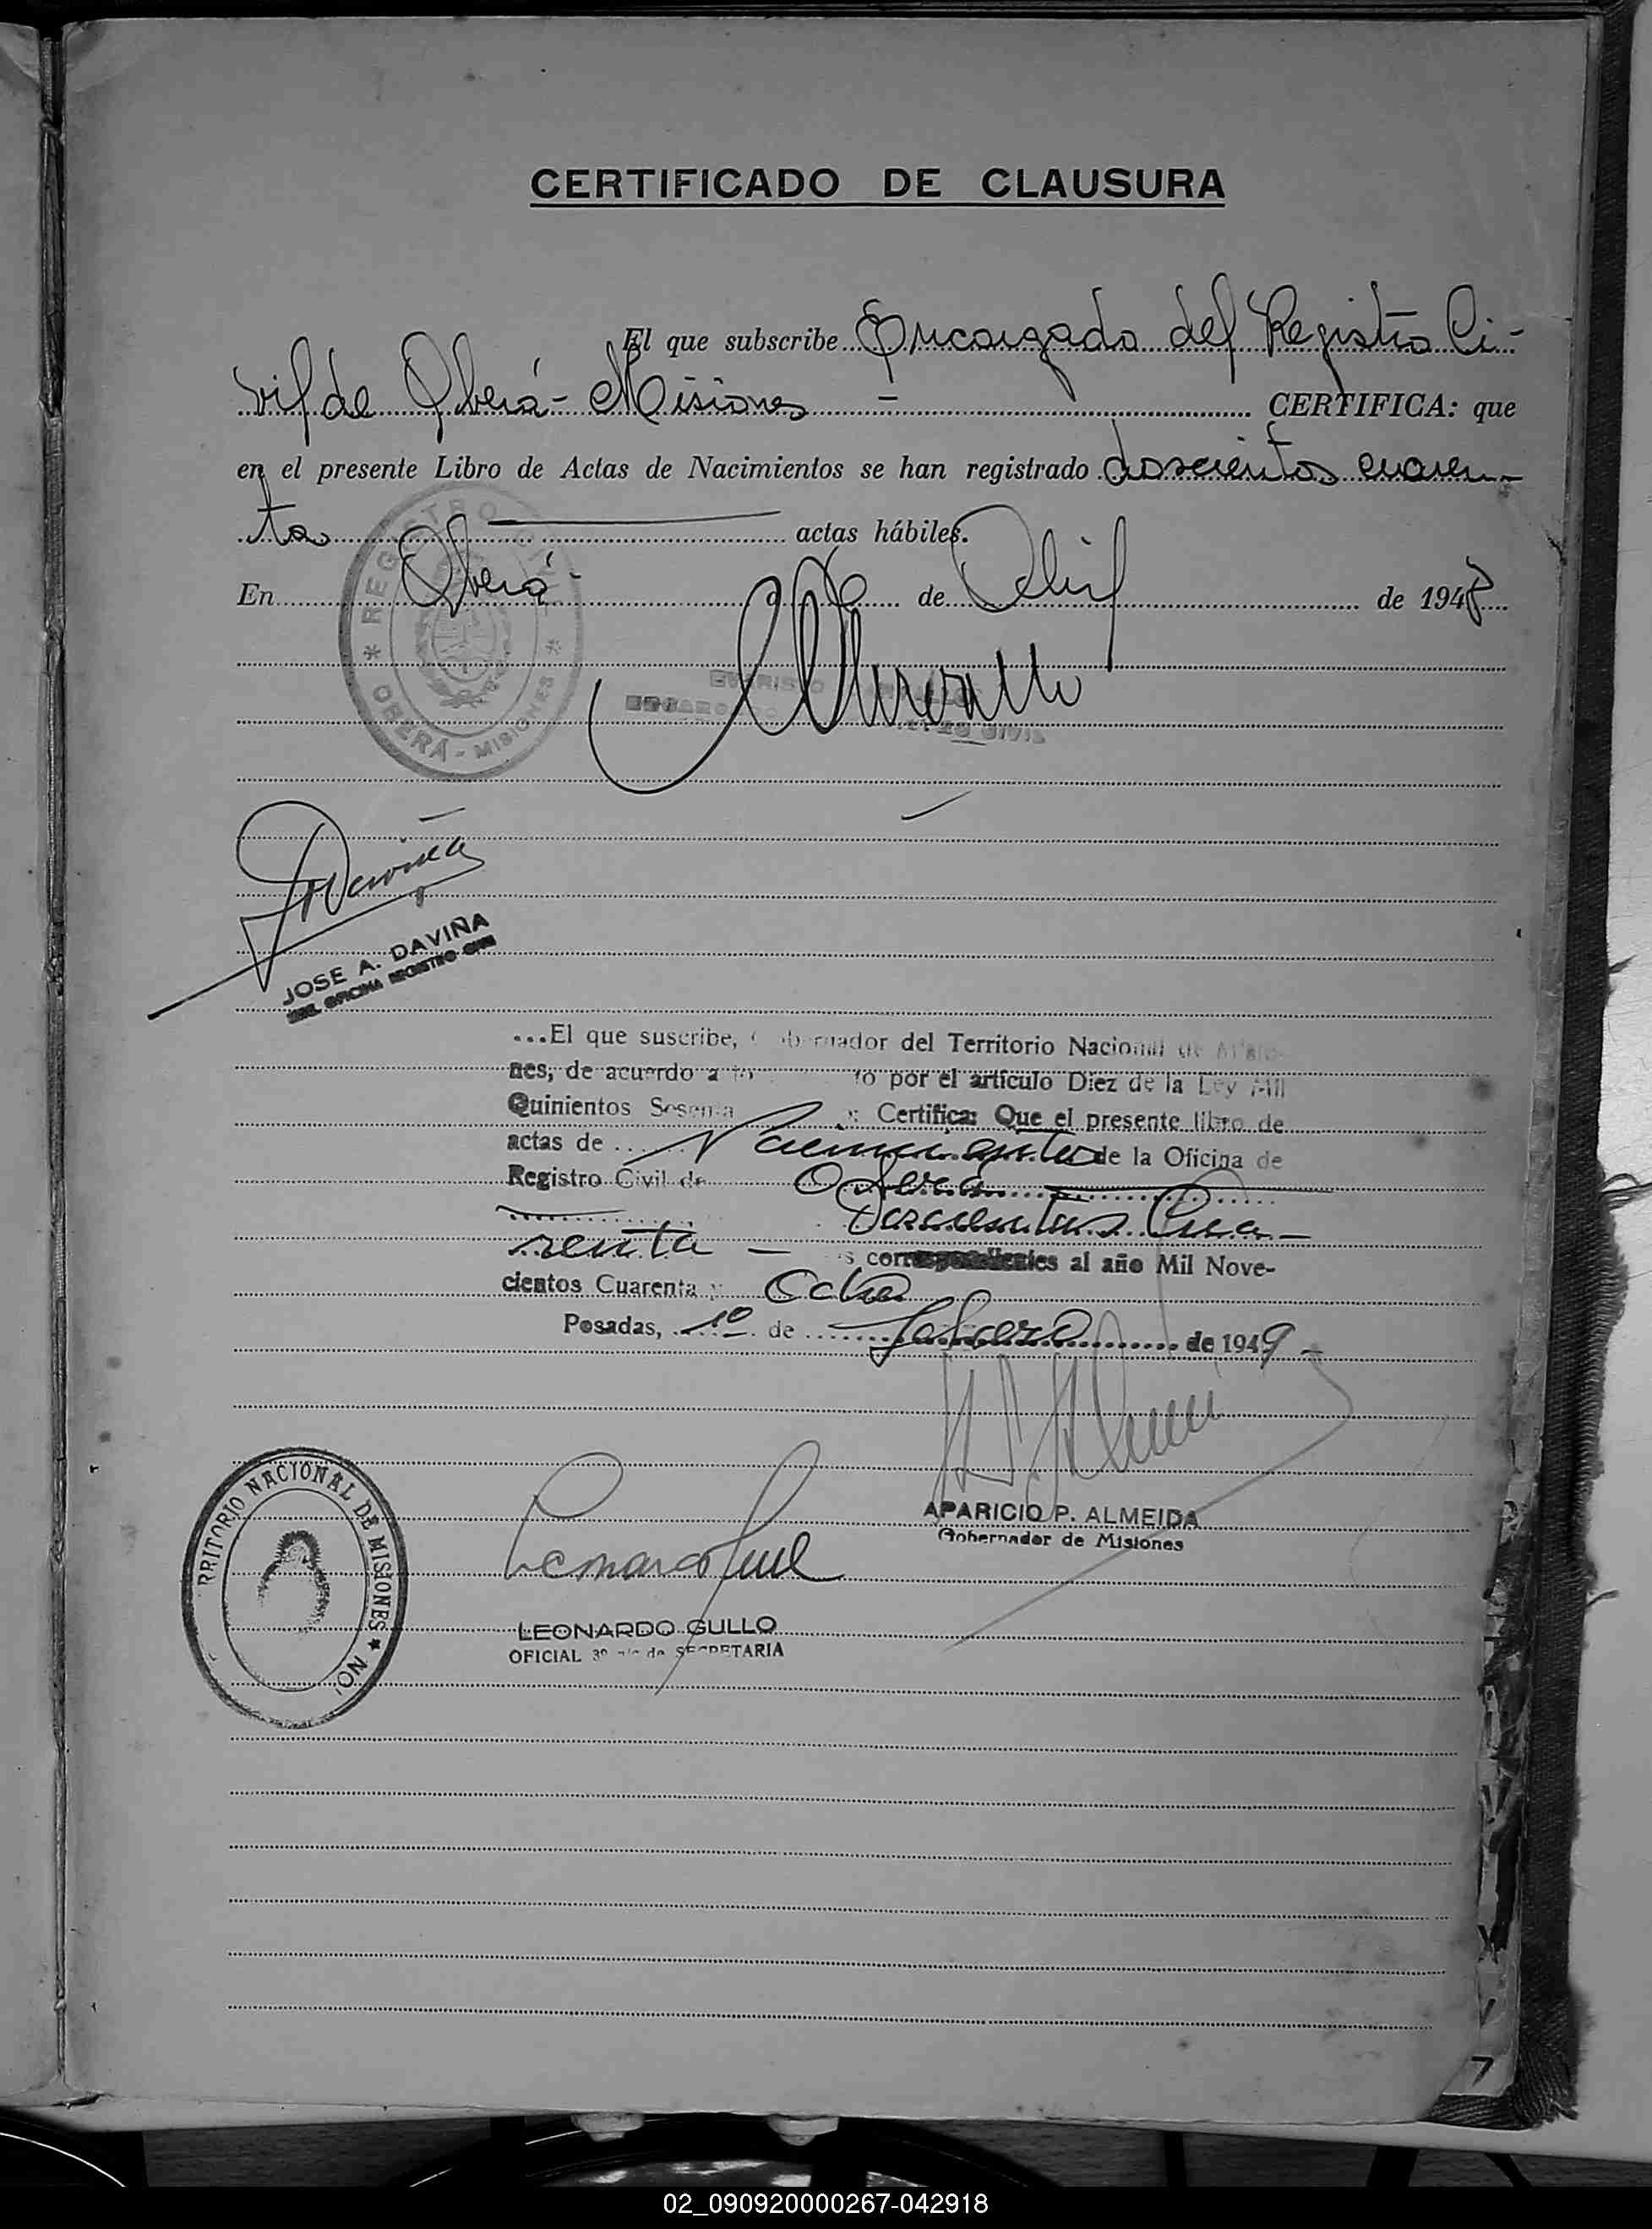 CERTIFICADO DE CLAUSURA
El que subscribe Encargado del Registro Ci-
vil de Oberá - Misiones - CERTIFICA: que
en el presente Libro de Actas de Nacimientos se han registrado doscientos cuaren-
ta actas hábiles.
En Oberá de Abril de 1948
REGISTRO CIVIL
* OBERÁ - MISIONES *
EVARISTO
REGISTRO CIVIL
JOSE A. DAVIÑA
OFICINA REGISTRO CIVIL
...El que suscribe, Gobernador del Territorio Nacional de Misio-
nes, de acuerdo a lo por el artículo Diez de la Ley Mil
Quinientos Sesenta y Certifica: Que el presente libro de
actas de Nacimientos de la Oficina de
Registro Civil de Oberá
Doscientas Cua-
renta - correspondientes al año Mil Nove-
cientos Cuarenta y Ocho
Posadas, 10 de Febrero de 1949 -
APARICIO P. ALMEIDA
Gobernador de Misiones
RRITORIO NACIONAL DE MISIONES ★ NO
Leonardo Gullo
LEONARDO GULLO
OFICIAL 3º a/c de SECRETARIA
7
02_090920000267-042918